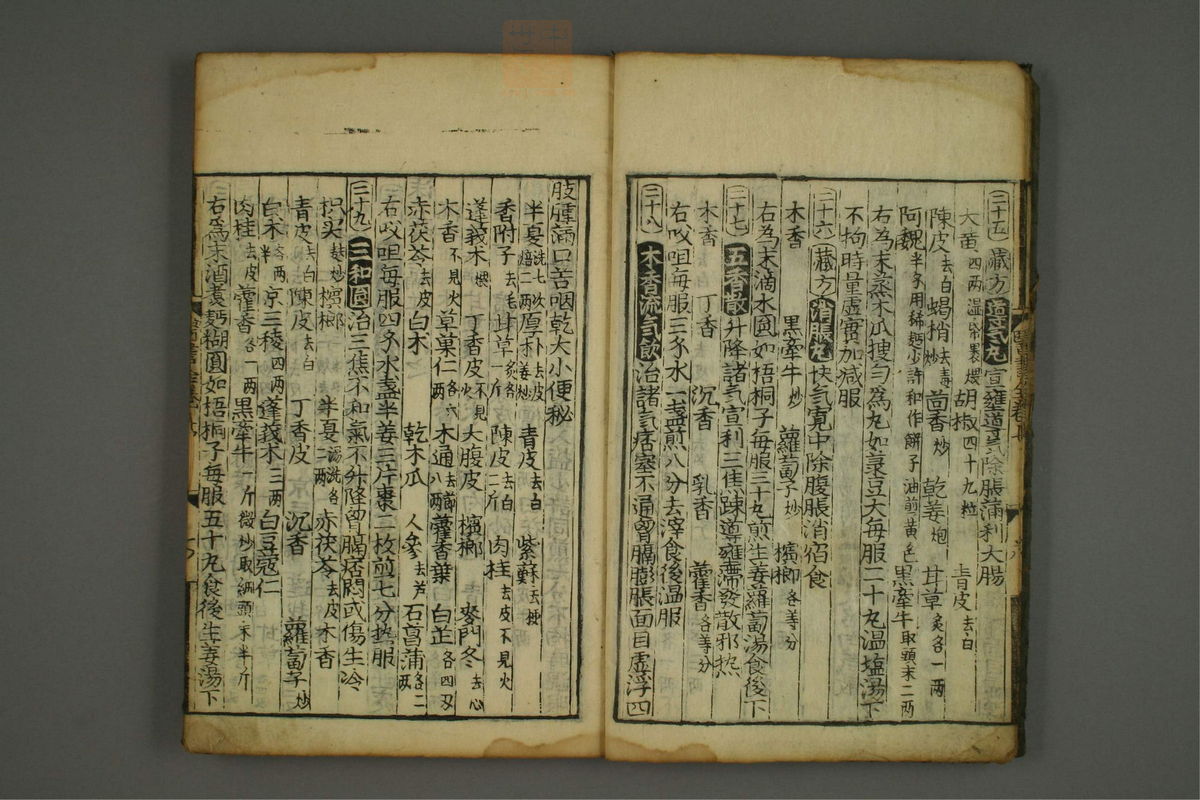 二十五 藏方 導氣丸 宣壅導氣除脹滿利大腸
大黃四兩湿帋裹煨 胡椒四十九粒 青皮去白
陳皮去白 蝎梢去毒炒 茴香炒 乾姜炮 甘草炙各一兩
阿魏半錢用稀麪少許和作餅子油煎黃色 黑牽牛取頭末二兩
右為末蒸木瓜搜勻為丸如菉豆大每服二十丸温塩湯下
不拘時量虛實加減服
二十六 藏方 消脹丸 快氣寬中除腹脹消宿食
木香 黑牽牛炒 蘿蔔子炒 檳榔各等分
右為末滴水圓如梧桐子每服三十丸煎生姜蘿蔔湯食後下
二十七 五香散 升降諸氣宣利三焦踈導壅滯發散邪热
木香 丁香 沉香 乳香 藿香各等分
右㕮咀每服三錢水一盞煎八分去滓食後温服
二十八 木香流氣飲 治諸氣痞塞不通胷膈膨脹面目虛浮四
肢腫滿口苦咽乾大小便秘
半夏洗七次焙二兩 厚朴去皮姜炒 青皮去白 紫蘇去梗
香附子去毛 甘草炙各一斤 陳皮去白二斤 肉桂去皮不見火
蓬莪朮煨 丁香皮不見火 大腹皮 檳榔 麥門冬去心
木香不見火 草菓仁各六兩 木通去節八兩 藿香葉 白芷各四兩
赤茯苓去皮 白朮 乾木瓜 人參去芦 石菖蒲各二兩
右㕮咀每服四錢水盞半姜三片棗二枚煎七分热服
二十九 三和圓 治三焦不和氣不升降胷膈痞悶或傷生冷
枳壳麩炒 檳榔 半夏湯洗各二兩 赤茯苓去皮 木香
青皮去白 陳皮去白 丁香皮 沉香 蘿蔔子炒
白朮各兩半 京三稜四兩 蓬莪朮三兩 白豆蔻仁
肉桂去皮 藿香各一兩 黑牽牛一斤微炒取細頭末半斤
右為末酒煮麪糊圓如梧桐子每服五十丸食後生姜湯下